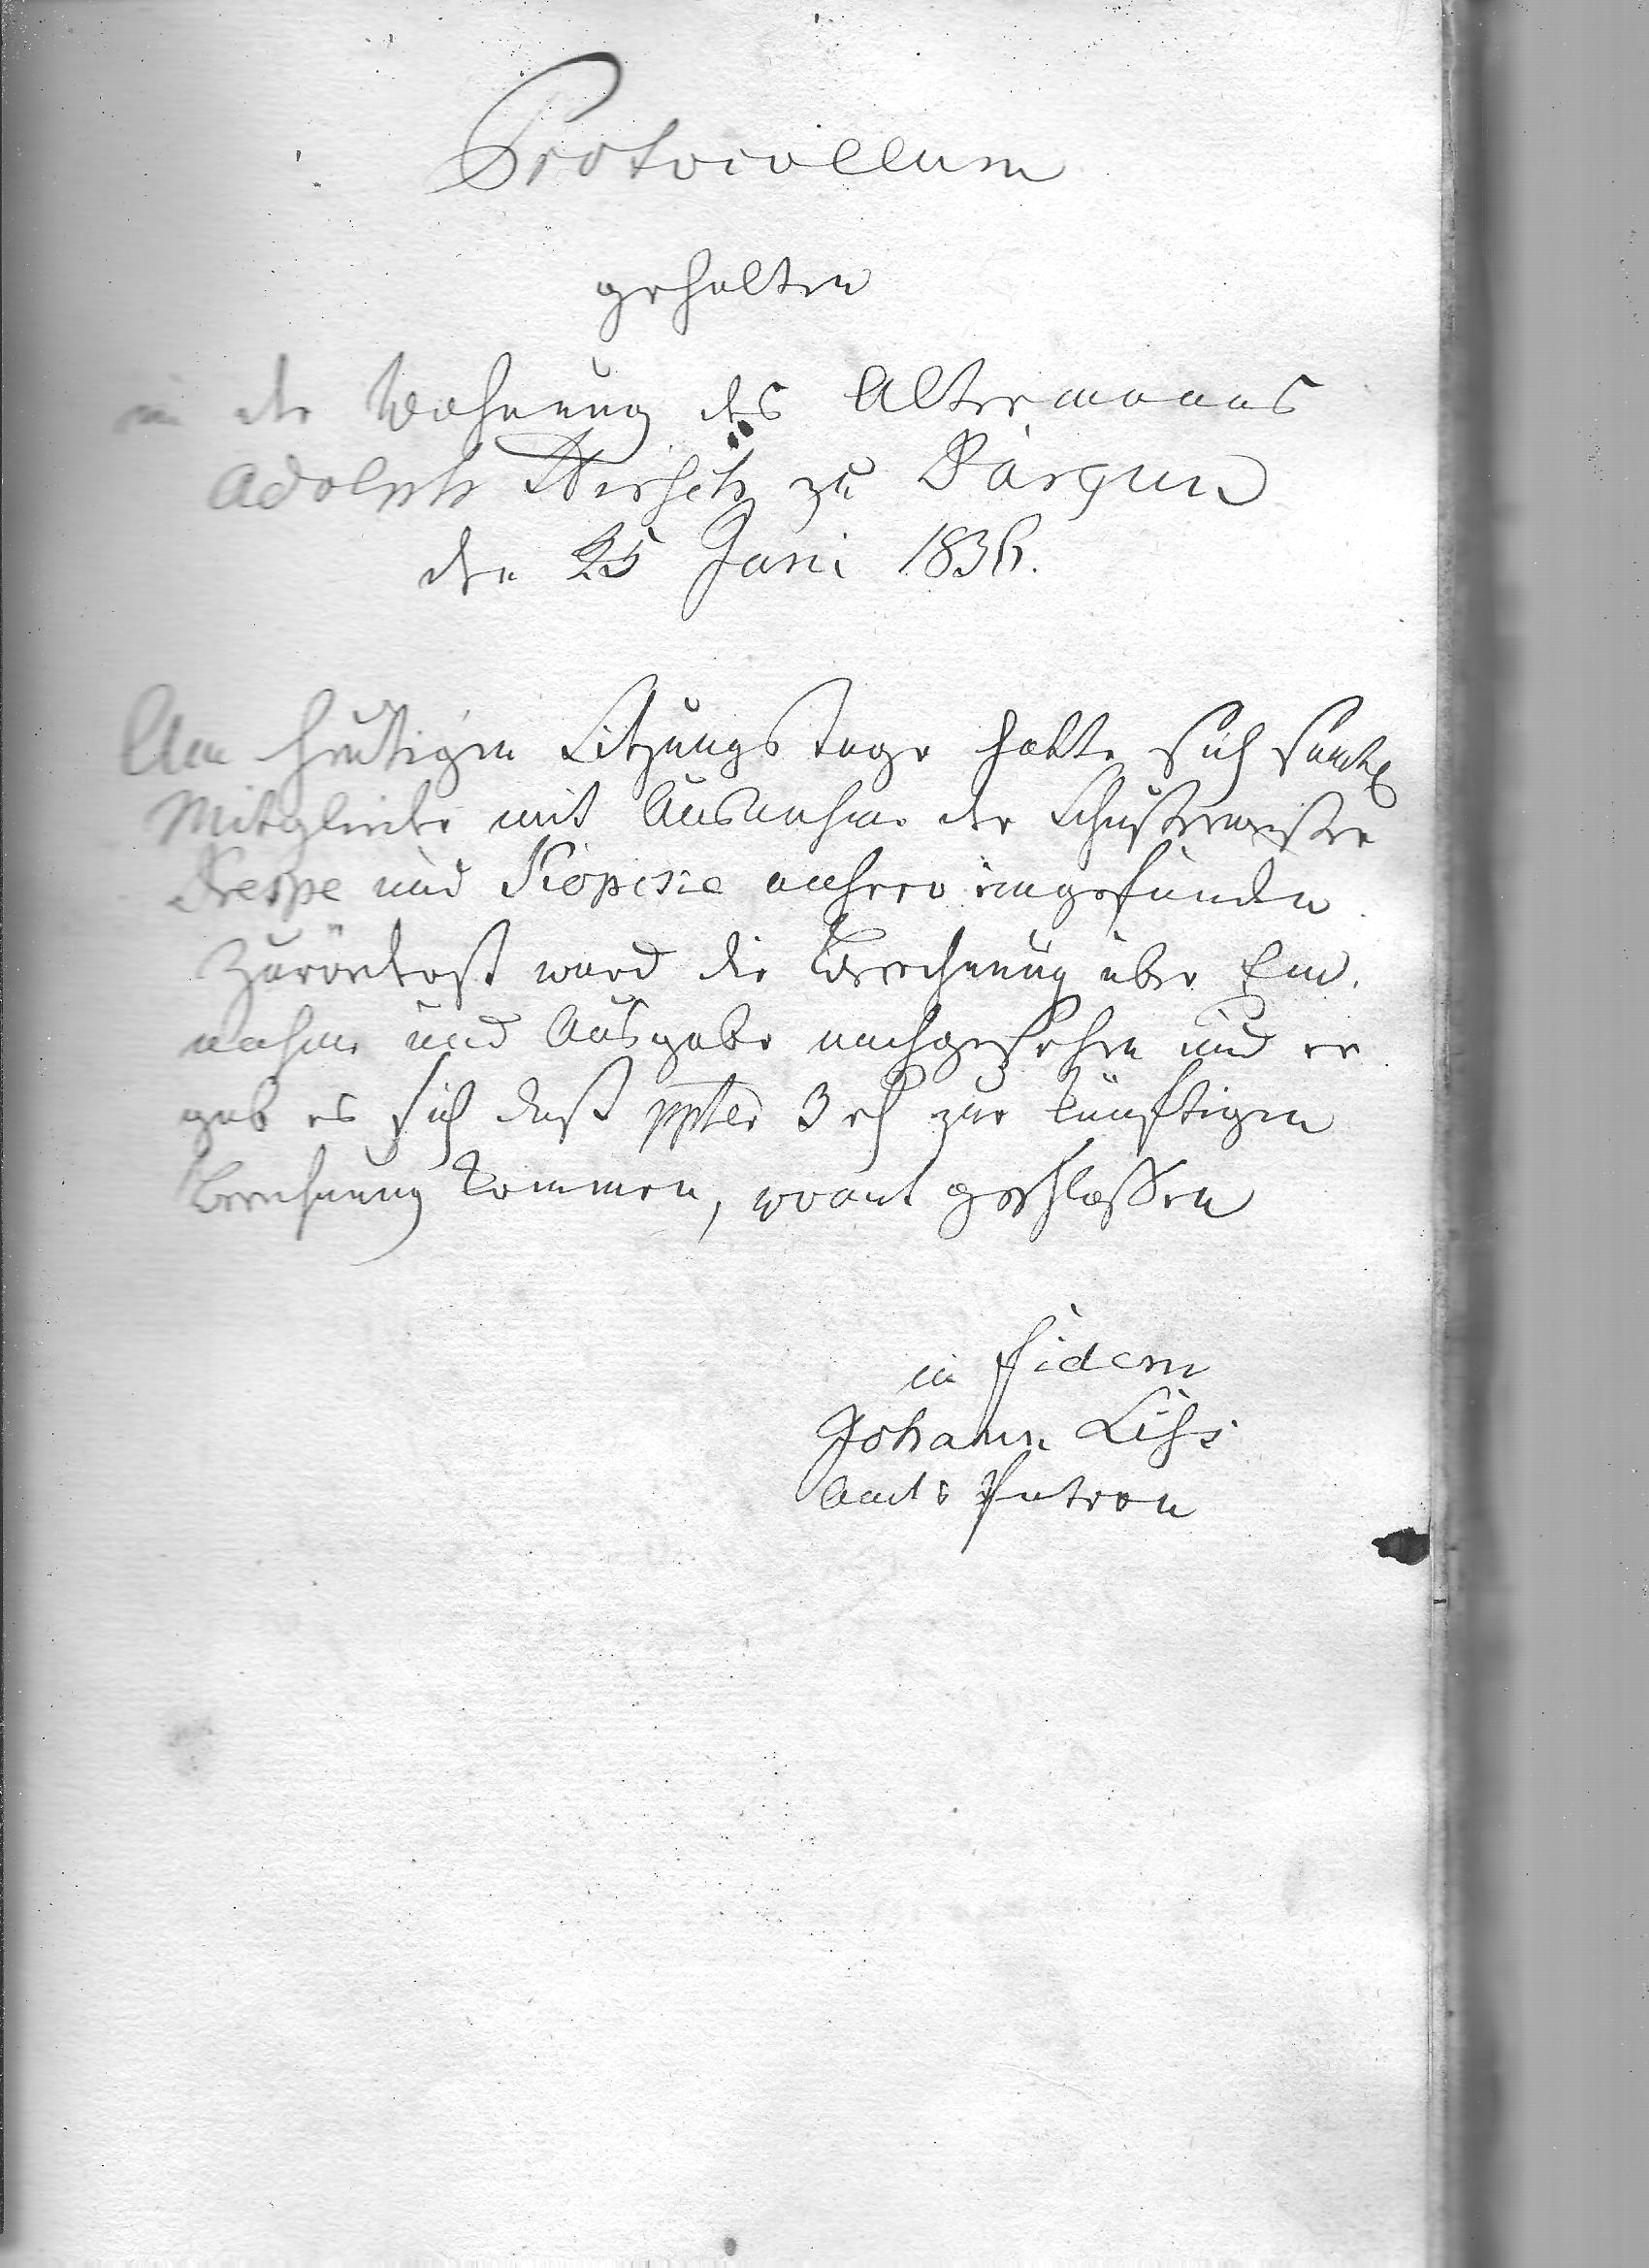 Protocollum
gehalten
in der Wohnung des Altermanns
Adolph zu Dargun
den 25 Juni 1836.
Am heutigen Sitzungstage hatte sich sämtl
Mitglieder mit Ausnahme der Schustermeister
und anhero eingefunden
Zuvörderst ward die Berechnung über Ein,
nahme und Ausgabe nachgesehen und er
gab es sich daß 3 zur künftigen
Berechnung kommen, womit geschlossen
in fidem
Johann
Amts Patron